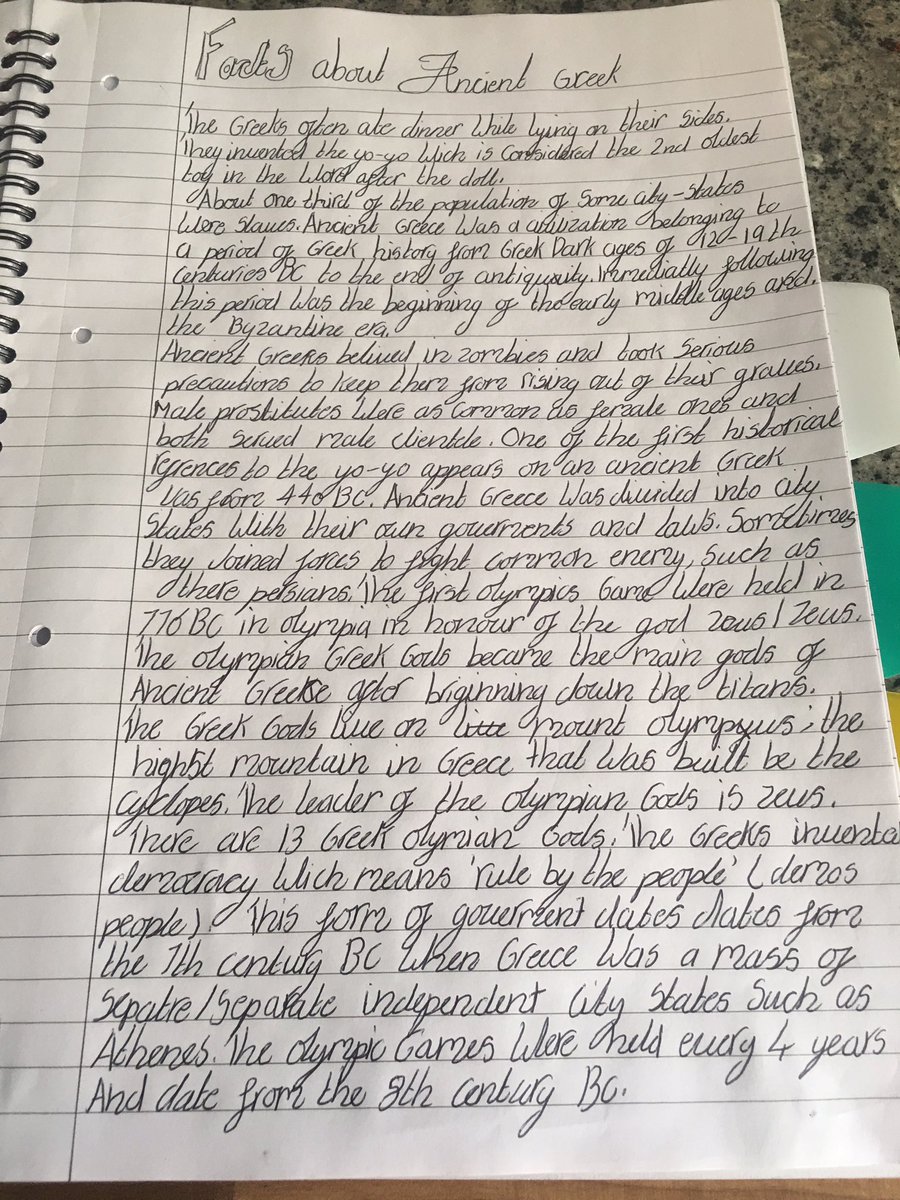 Facts about Ancient Greek
The Greeks often ate dinner while lying on their sides.
They invented the yo-yo wich is considered the 2nd oldest
toy in the world after the doll.
About one third of the population of some city-states
were slaves. Ancient Greece was a civilization belonging to
a period of Greek history from Greek Dark ages of 012-19th
centuries BC to the end of antiguity. Immedially following
this period was the beginning of the early middle ages and.
the Byzantine era.
Ancient Greeks belived in zombies and took serious
precautions to keep them from rising out of their graves.
Male prostitutes were as common as female ones and
both served male clientele. One of the first historical
refences to the yo-yo appears on an ancient Greek
vas from 440 BC. Ancient Greece was divided into city
states with their own goverments and laws. Sometimes
they joined forces to fight common enemy, such as
there persians. The first olympics Game were held in
776 BC in olympia in honour of the god zeus / Zeus.
The olympian Greek Gods became the main gods of
Ancient Greekse after briginning down the titans.
The Greek Gods live on mount olympyus; the
highest mountain in Greece that was built be the
cyclopes. The leader of the olympian Gods is zeus.
There are 13 Greek olymian Gods. The Greeks invented
democracy wich means 'rule by the people' (demos
people). This form of goverment dates dates from
the 7th century BC when Greece was a mass of
sepatre/separate independent city states such as
Athenes. The olympic Games were held every 4 years
And date from the 8th century BC.